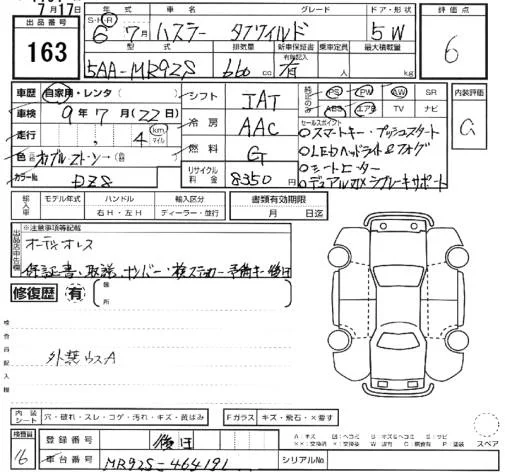 7月17日
出品番号 年式 車名 グレード ドア・形状 評価点
163
S・H・R
6 年 7月 ハスラー タフワイルド 5W 6
型式 排気量 新車保証書 有無記入 乗定員 最大積載量
5AA-MR92S 660 cc 有 人 kg
車歴 自家用・レンタ シフト IAT
PS PW AW SR 内装評価
ABS エアB TV ナビ
車検 9年7月(22日) 冷房 AAC
セールスポイント
○スマートキー・プッシュスタート
走行 4 km マイル 燃料 G
○LEDヘッドライト&フォグ
○シートヒーター
色 リサイクル料金 8350円
○デュアルカメラブレーキサポート
カラーNo DZS
輸入車 モデル年式 ハンドル 輸入区分 書類有効期限
年 右H・左H ディーラー・並行 月 日迄
出品店申告欄 ※注意事項等記載
オーディオレス
保証書・取説・ナンバー・検ステッカー・予備キー後日
修復歴 有 箇所
検査員記入欄
外装ウスA
内装シート 穴・破れ・スレ・コゲ・汚れ・キズ・黄ばみ Fガラス キズ・飛石・×要す
検査員 登録番号 後日
スペア
16 車台番号 MR92S-464191 シリアルNo